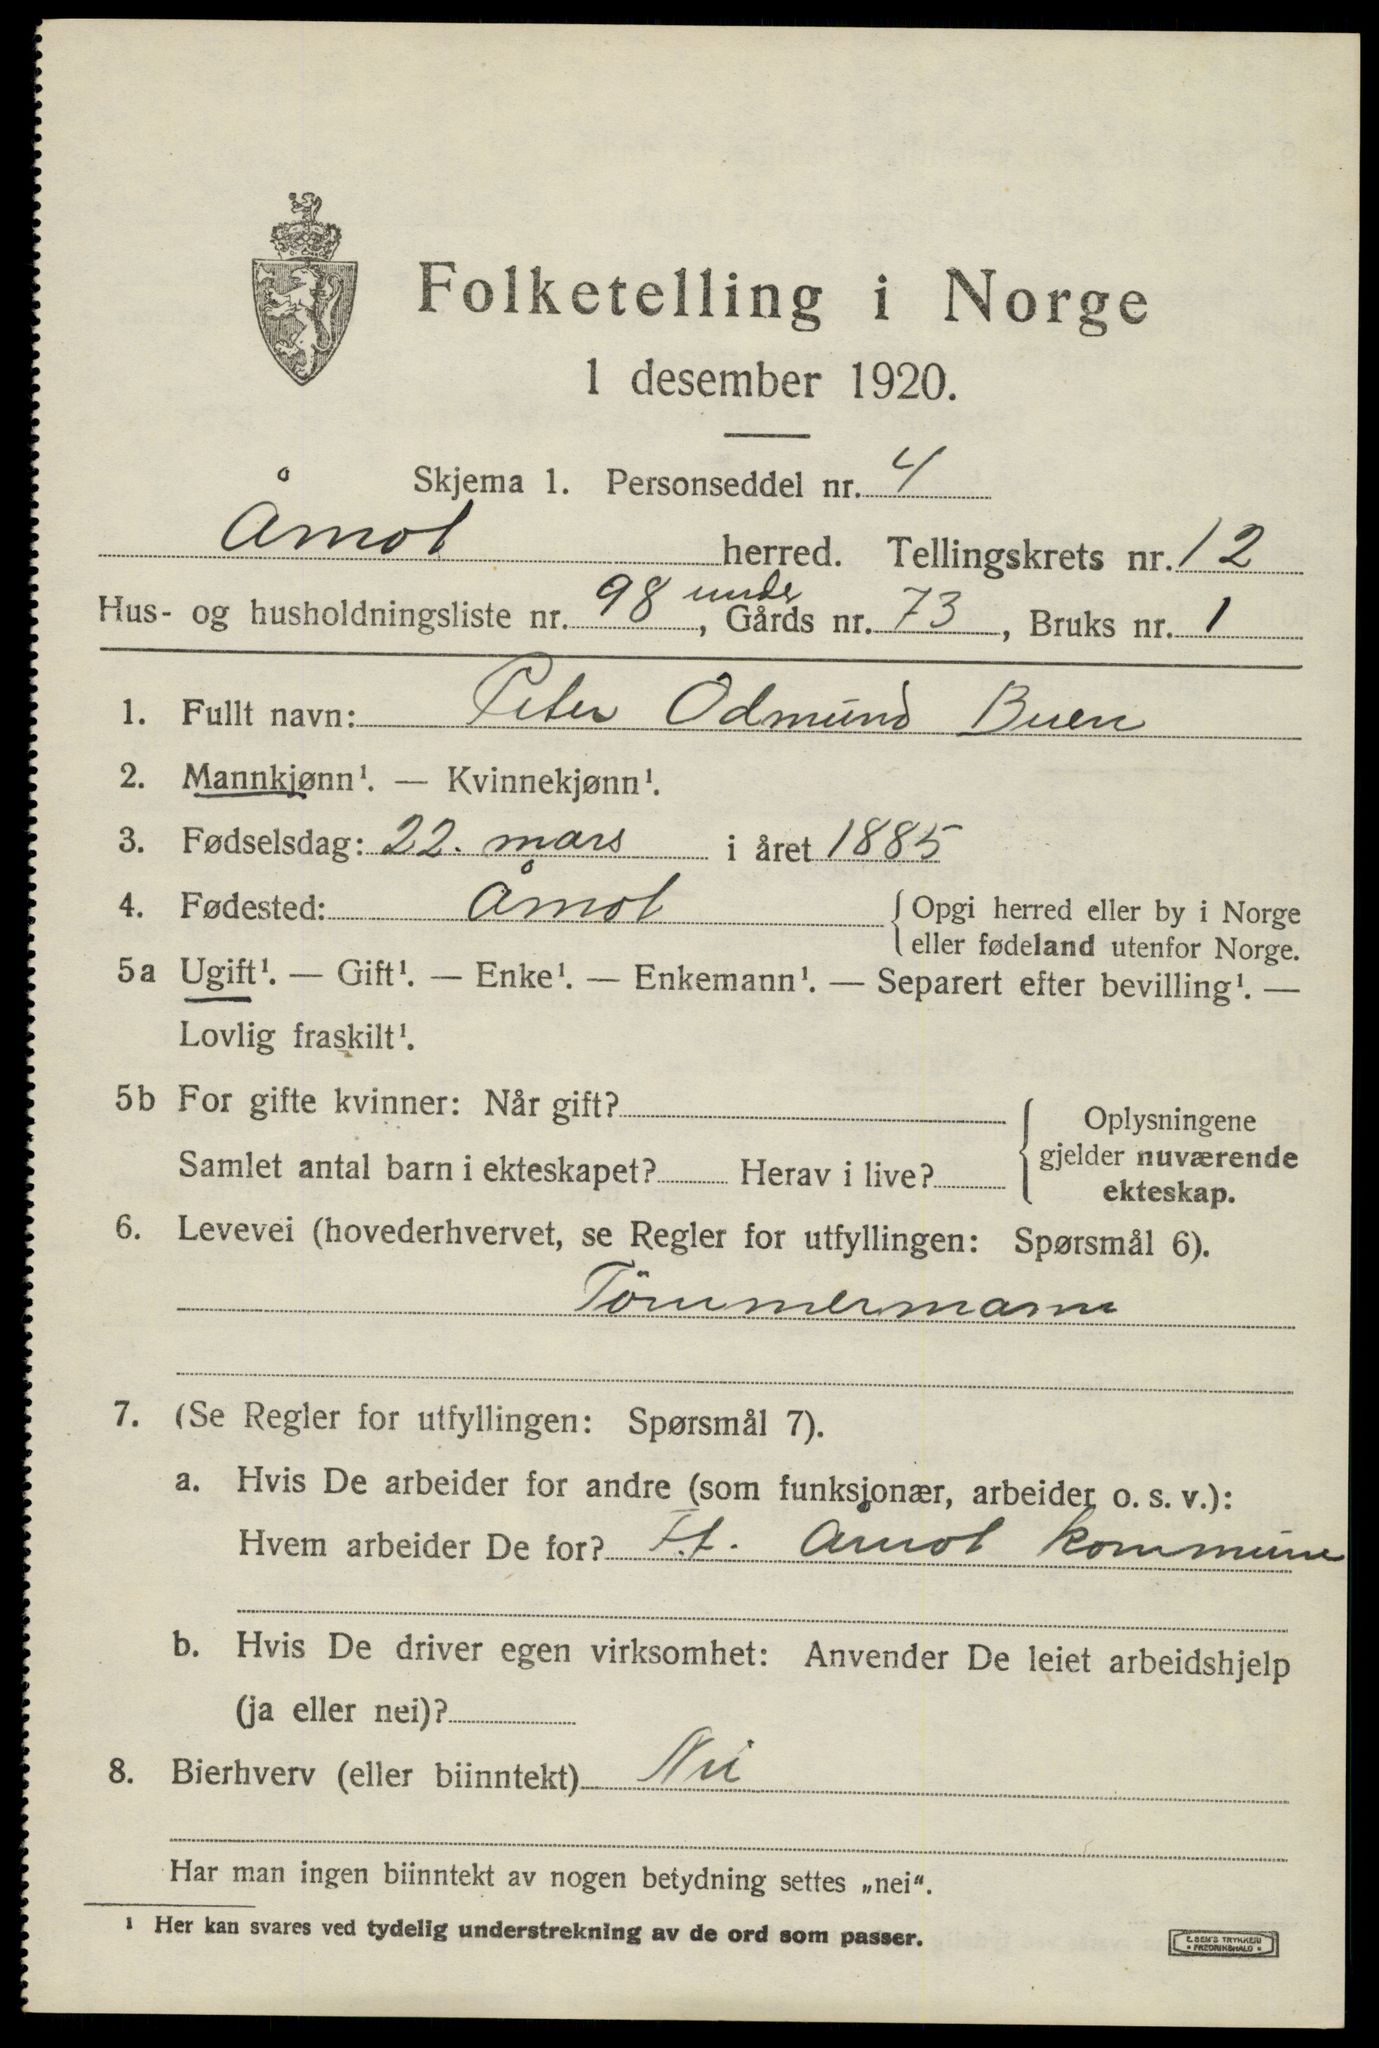 Folketelling i Norge
1 desember 1920.
Skjema 1. Personseddel nr. 4
Åmot herred. Tellingskrets nr. 12
Hus- og husholdningsliste nr. 98 under, Gårds nr. 73, Bruks nr. 1
1. Fullt navn: Peter Odmund Buen
2. Mannkjønn¹. — Kvinnekjønn¹.
3. Fødselsdag: 22. mars i året 1885
4. Fødested: Åmot { Opgi herred eller by i Norge
eller fødeland utenfor Norge.
5a Ugift¹. — Gift¹. — Enke¹. — Enkemann¹. — Separert efter bevilling¹. —
Lovlig fraskilt¹.
5b For gifte kvinner: Når gift?
Samlet antal barn i ekteskapet? Herav i live?
Oplysningene
gjelder nuværende
ekteskap.
6. Levevei (hovederhvervet, se Regler for utfyllingen: Spørsmål 6).
Tömmermann
7. (Se Regler for utfyllingen: Spørsmål 7).
a. Hvis De arbeider for andre (som funksjonær, arbeider o. s. v.):
Hvem arbeider De for? F.t. Åmot kommune
b. Hvis De driver egen virksomhet: Anvender De leiet arbeidshjelp
(ja eller nei)?
8. Bierhverv (eller biinntekt) Nei
Har man ingen biinntekt av nogen betydning settes „nei“.
¹ Her kan svares ved tydelig understrekning av de ord som passer.
E. SEM'S TRYKKERI
• FREDRIKSHALD •